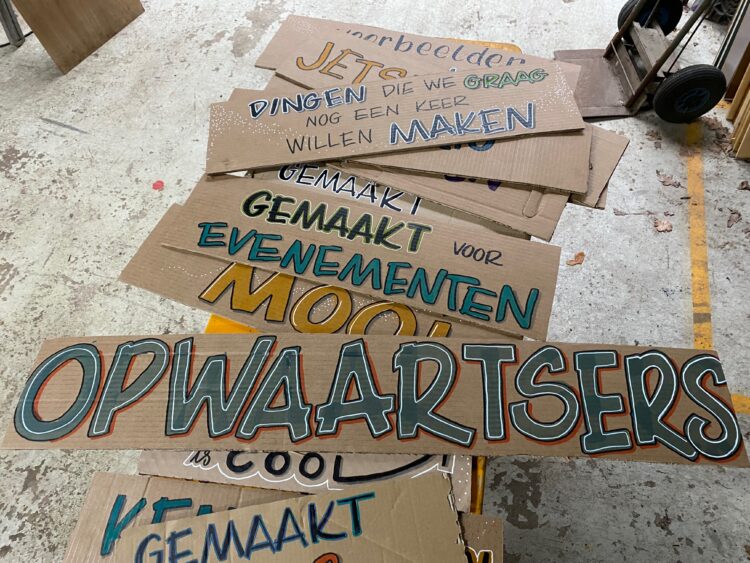 Voorbeelder
JETS
DINGEN DIE WE GRAAG
NOG EEN KEER
WILLEN MAKEN
GEMAAKT
GEMAAKT VOOR
EVENEMENTEN
MOOI
OPWAARTSERS
is COOL
GEMAAKT